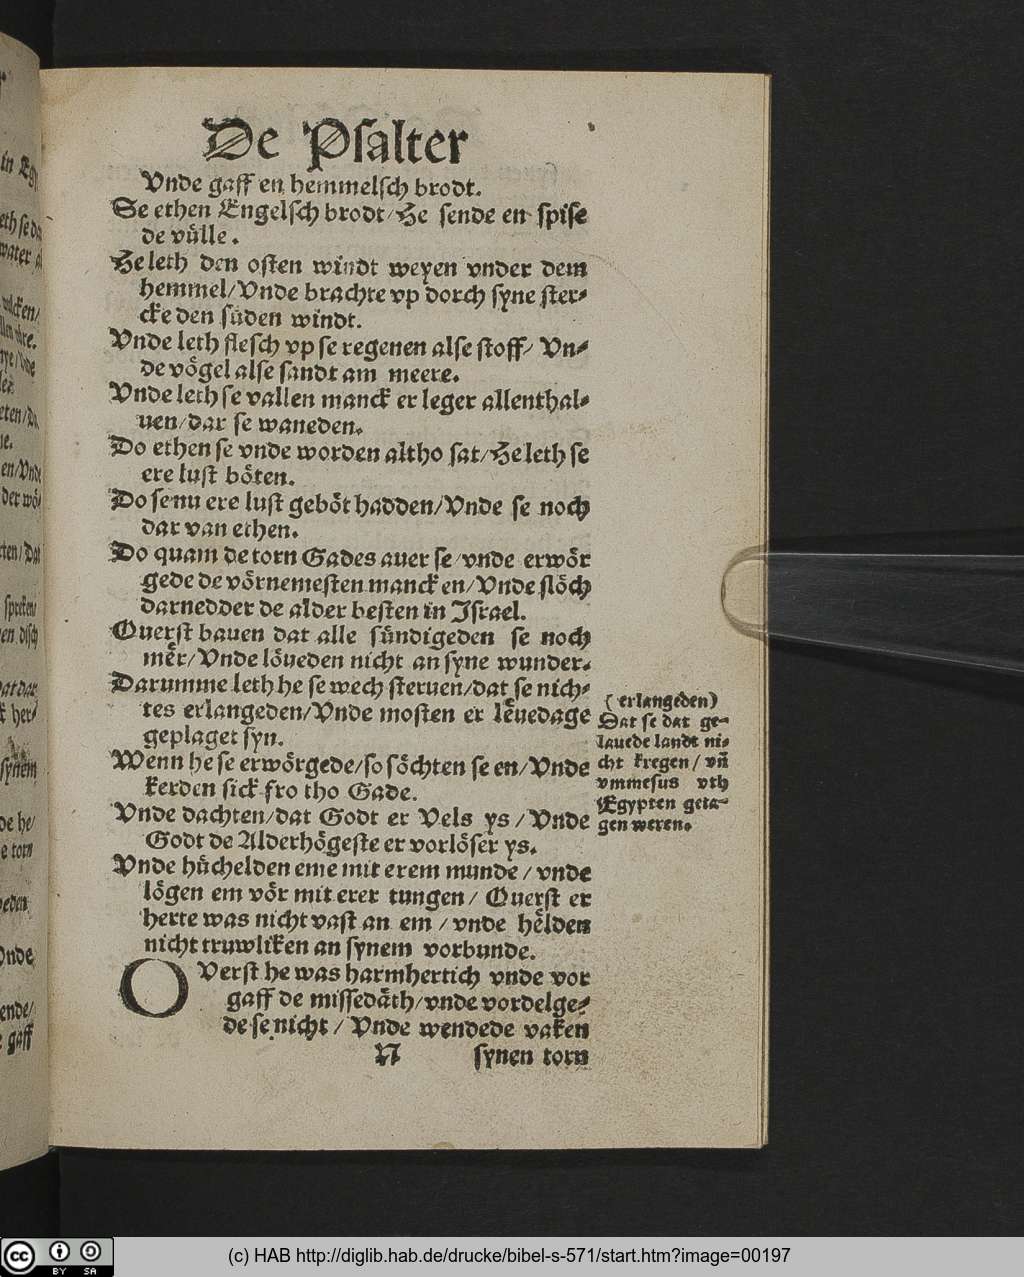 De Psalter
Vnde gaff en hemmelsch brodt.
Se ethen Engelsch brodt/ He sende en spise
de vülle.
He leth den osten windt weyen vnder dem
hemmel/ Vnde brachte vp dorch syne ster⸗
cke den süden windt.
Vnde leth flesch vp se regenen alse stoff/ Vn⸗
de vögel alse sandt am meere.
Vnde leth se vallen manck er leger allenthal⸗
uen/ dar se waneden.
Do ethen se vnde worden altho sat/ He leth se
ere lust böten.
Do se nu ere lust geböt hadden/ Vnde se noch
dar van ethen.
Do quam de torn Gades auer se/ vnde erwör
gede de vörnemesten manck en/ Vnde slöch
darnedder de alder besten in Israel.
Ouerst bauen dat alle sündigeden se noch
mer/ Vnde löueden nicht an syne wunder.
Darumme leth he se wech steruen/ dat se nich⸗
tes erlangeden/ Vnde mosten er leuedage
geplaget syn.
Wenn he se erwörgede/ so söchten se en/ Vnde
kerden sick fro tho Gade.
Vnde dachten/ dat Godt er Vels ys/ Vnde
Godt de Alderhögeste er vorlöser ys.
Vnde hüchelden eme mit erem munde/ vnde
lögen em vör mit erer tungen/ Ouerst er
herte was nicht vast an em/ vnde helden
nicht truwliken an synem vorbunde.
OVerst he was barmhertich vnde vor
gaff de missedäth/ vnde vordelge⸗
de se nicht/ Vnde wendede vaken
N synen torn
(erlangeden)
Dat se dat ge⸗
lauede landt ni⸗
cht kregen/ vñ
vmmesus vth
Egypten geta⸗
gen weren.
(c) HAB http://diglib.hab.de/drucke/bibel-s-571/start.htm?image=00197
cc BY SA